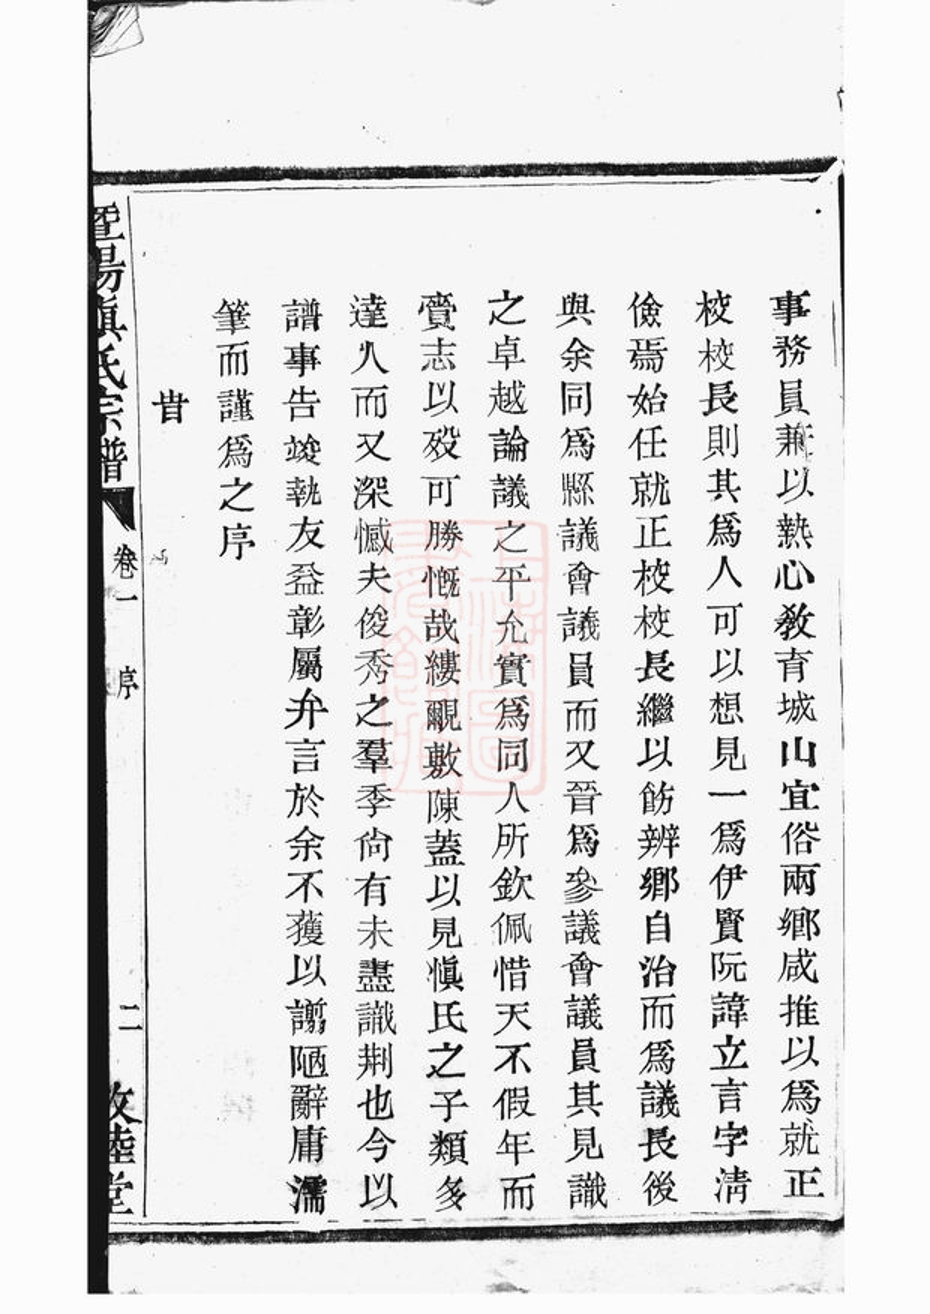 事務員兼以熱心敎育城山宜俗兩鄕咸推以爲就正
校校長則其爲人可以想見一爲伊賢阮諱立言字淸
儉焉始任就正校校長繼以飭辨鄕自治而爲議長後
與余同爲縣議會議員而又晉爲參議會議員其見識
之卓越論議之平允實爲同人所欽佩惜天不假年而
賷志以歿可勝慨哉縷覼敷陳蓋以見愼氏之子類多
達人而又深憾夫俊秀之羣季尙有未盡識荆也今以
譜事告竣執友益彰屬弁言於余不獲以謭陋辭庸濡
筆而謹爲之序
旹
暨陽愼氏宗譜
卷一
序
二
敦睦堂